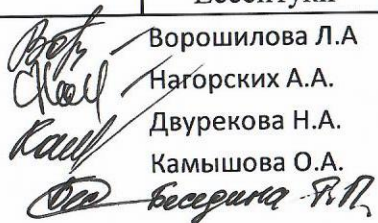 Ессентуки
Ворошилова Л.А
Нагорских А.А.
Двурекова Н.А.
Камышова О.А.
Беседина Р.П.